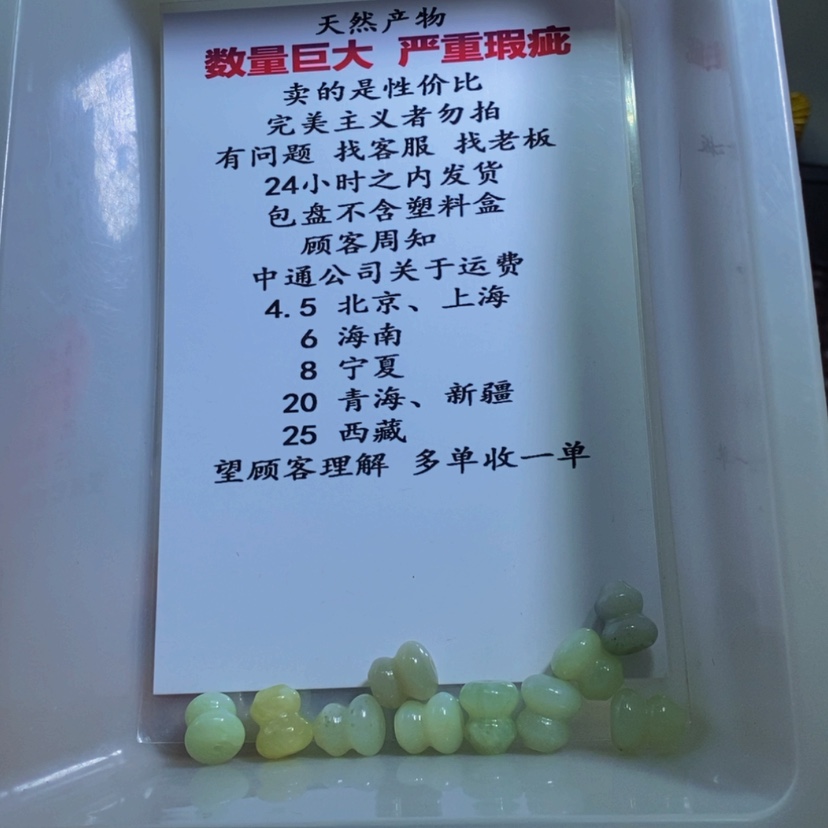 天然产物
数量巨大 严重瑕疵
卖的是性价比
完美主义者勿拍
有问题 找客服 找老板
24小时之内发货
包盘不含塑料盒
顾客周知
中通公司关于运费
4.5 北京、上海
6 海南
8 宁夏
20 青海、新疆
25 西藏
望顾客理解 多单收一单